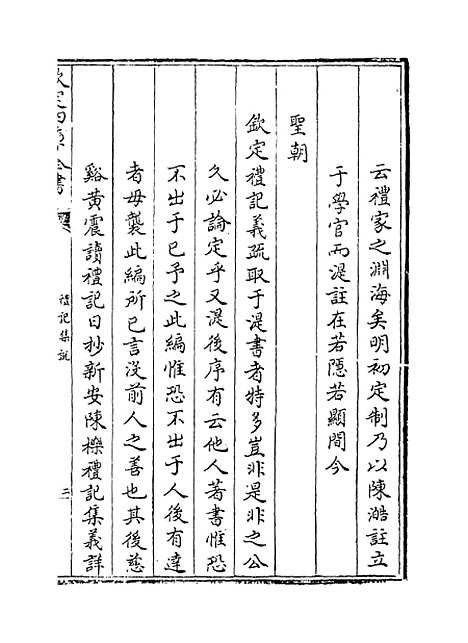 云禮家之淵海矣明初定制乃以陳澔註立
于學官而湜註在若隱若顯間今
聖朝
欽定禮記義疏取于湜書者特多豈非是非之公
久必論定乎又湜後序有云他人著書惟恐
不出于已予之此編惟恐不出于人後有達
者毋襲此編所已言沒前人之善也其後慈
谿黄震讀禮記日抄新安陳櫟禮記集義詳
欽定四庫全書
禮記集說
三